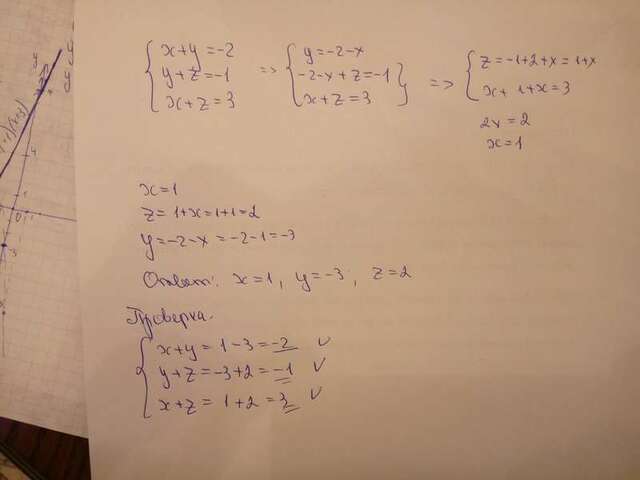 { x+y=-2
y+z=-1
x+z=3
=>
{ y=-2-x
-2-x+z=-1
x+z=3 }
=>
{ z=-1+2+x=1+x
x+1+x=3
2x=2
x=1
x=1
z=1+x=1+1=2
y=-2-x=-2-1=-3
Ответ: x=1, y=-3; z=2
Проверка:
{ x+y=1-3=-2 v
y+z=-3+2=-1 v
x+z=1+2=3 v